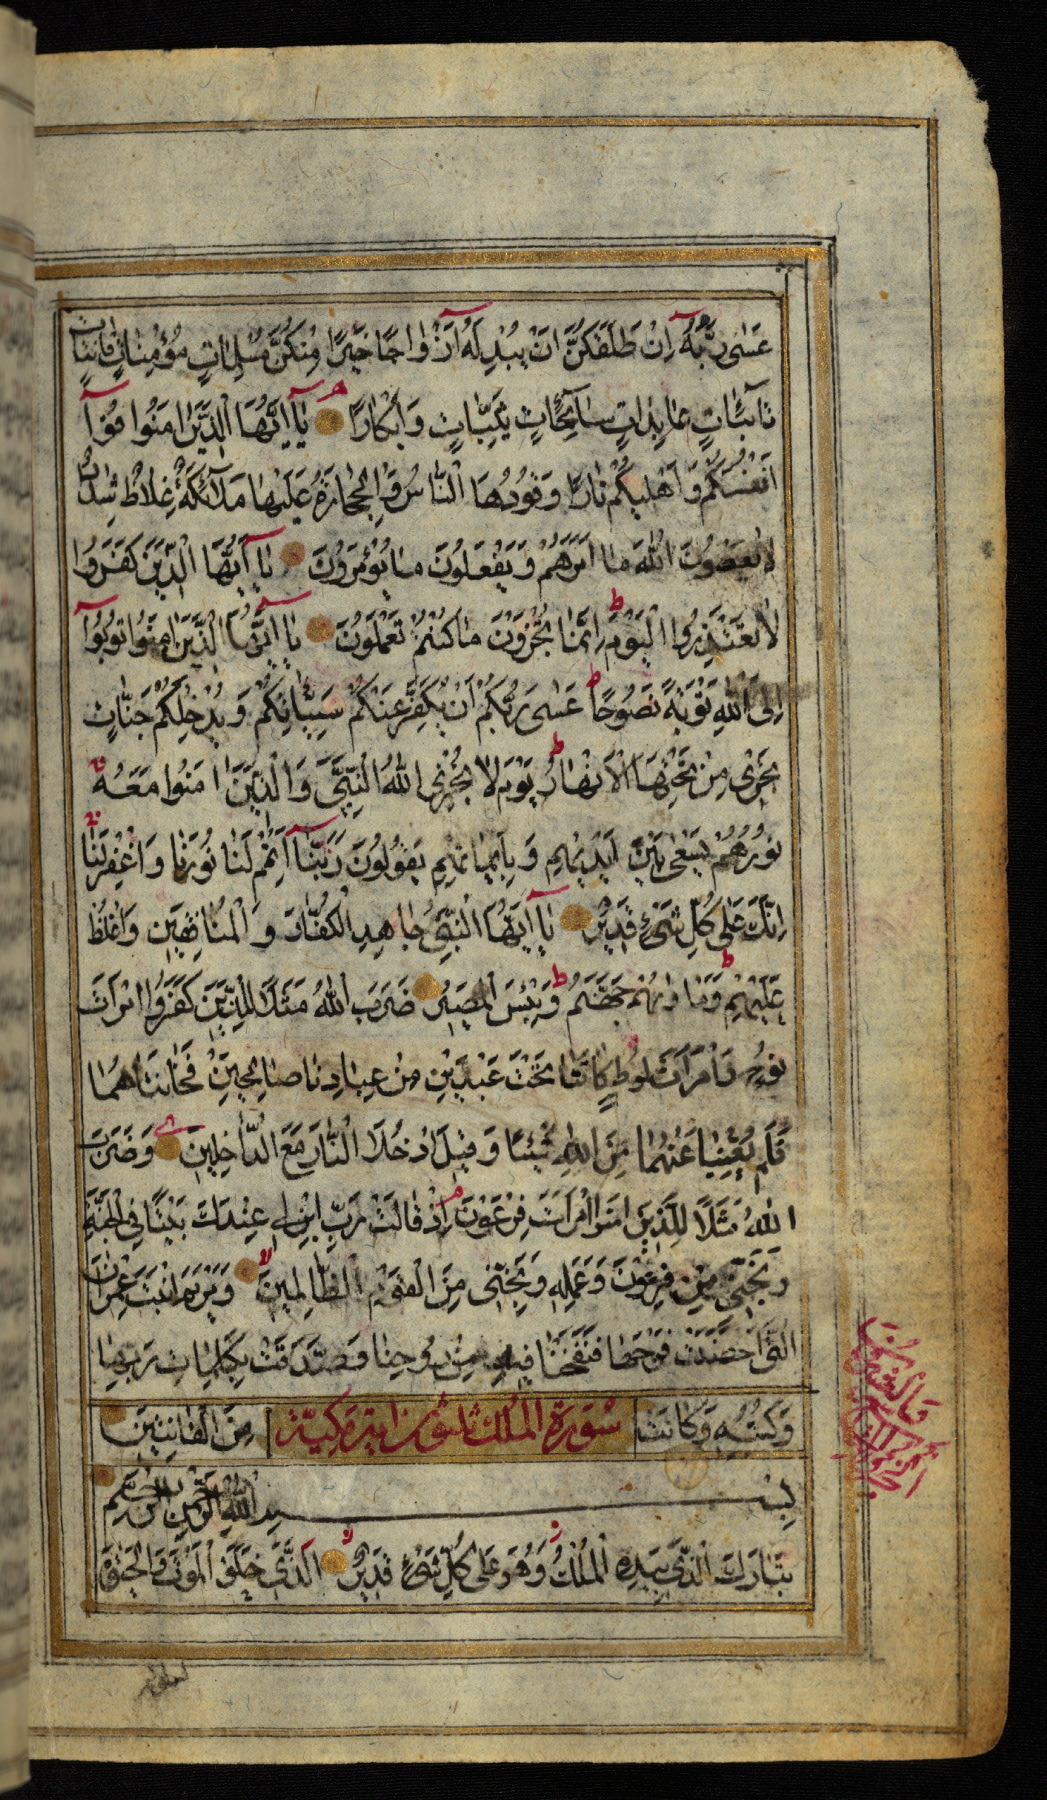 عَسٰى رَبُّهُ اِنْ طَلَّقَكُنَّ اَنْ يُبْدِلَهُ اَزْوٰاجًا خَيْرًا مِنْكُنَّ مُسْلِمٰاتٍ مُؤْمِنٰاتٍ قٰانِتٰاتٍ
تٰائِبٰاتٍ عٰابِدٰاتٍ سٰائِحٰاتٍ ثَيِّبٰاتٍ وَاَبْكٰارًا يٰا اَيُّهَا الَّذِيْنَ اٰمَنُوا قُوْا
اَنْفُسَكُمْ وَاَهْلِيكُمْ نٰارًا وَقُودُهَا النّٰاسُ وَالْحِجٰارَةُ عَلَيْهٰا مَلٰائِكَةٌ غِلٰاظٌ شِدٰادٌ
لٰا يَعْصُونَ اللّٰهَ مٰا اَمَرَهُمْ وَيَفْعَلُونَ مٰا يُؤْمَرُونَ يٰا اَيُّهَا الَّذِينَ كَفَرُوا
لٰا تَعْتَذِرُوا الْيَوْمَ اِنَّمٰا تُجْزَوْنَ مٰا كُنْتُمْ تَعْمَلُونَ يٰا اَيُّهَا الَّذِينَ اٰمَنُوا تُوبُوا
اِلَى اللّٰهِ تَوْبَةً نَصُوحًا عَسٰى رَبُّكُمْ اَنْ يُكَفِّرَ عَنْكُمْ سَيِّئٰاتِكُمْ وَيُدْخِلَكُمْ جَنّٰاتٍ
تَجْرِى مِنْ تَحْتِهَا الْاَنْهٰارُ يَوْمَ لٰا يُخْزِى اللّٰهُ النَّبِيَّ وَالَّذِينَ اٰمَنُوا مَعَهُ
نُورُهُمْ يَسْعٰى بَيْنَ اَيْدِيهِمْ وَبِاَيْمٰانِهِمْ يَقُولُونَ رَبَّنٰا اَتْمِمْ لَنٰا نُورَنٰا وَاغْفِرْ لَنٰا
اِنَّكَ عَلٰى كُلِّ شَىْءٍ قَدِيرٌ يٰا اَيُّهَا النَّبِيُّ جٰاهِدِ الْكُفّٰارَ وَالْمُنٰافِقِينَ وَاغْلُظْ
عَلَيْهِمْ وَمَأْوٰيهُمْ جَهَنَّمُ وَبِئْسَ الْمَصِيرُ ضَرَبَ اللّٰهُ مَثَلًا لِلَّذِينَ كَفَرُوا امْرَاَتَ
نُوحٍ وَامْرَاَتَ لُوطٍ كٰانَتٰا تَحْتَ عَبْدَيْنِ مِنْ عِبٰادِنٰا صٰالِحَيْنِ فَخٰانَتٰاهُمٰا
فَلَمْ يُغْنِيٰا عَنْهُمٰا مِنَ اللّٰهِ شَيْئًا وَقِيلَ ادْخُلَا النّٰارَ مَعَ الدّٰاخِلِينَ وَضَرَبَ
اللّٰهُ مَثَلًا لِلَّذِينَ اٰمَنُوا امْرَاَتَ فِرْعَوْنَ اِذْ قٰالَتْ رَبِّ ابْنِ لِى عِنْدَكَ بَيْتًا فِى الْجَنَّةِ
وَنَجِّنِى مِنْ فِرْعَوْنَ وَعَمَلِهِ وَنَجِّنِى مِنَ الْقَوْمِ الظّٰالِمِينَ وَمَرْيَمَ ابْنَتَ عِمْرٰانَ
الَّتِى اَحْصَنَتْ فَرْجَهٰا فَنَفَخْنٰا فِيهِ مِنْ رُوحِنٰا وَصَدَّقَتْ بِكَلِمٰاتِ رَبِّهٰا
وَكُتُبِهِ وَكٰانَتْ سُورَةُ الْمُلْكِ ثلثون اية مكية مِنَ الْقٰانِتِينَ
بِسْمِ اللّٰهِ الرَّحْمٰنِ الرَّحِيمِ
تَبٰارَكَ الَّذِى بِيَدِهِ الْمُلْكُ وَهُوَ عَلٰى كُلِّ شَىْءٍ قَدِيرٌ الَّذِى خَلَقَ الْمَوْتَ وَالْحَيٰوةَ